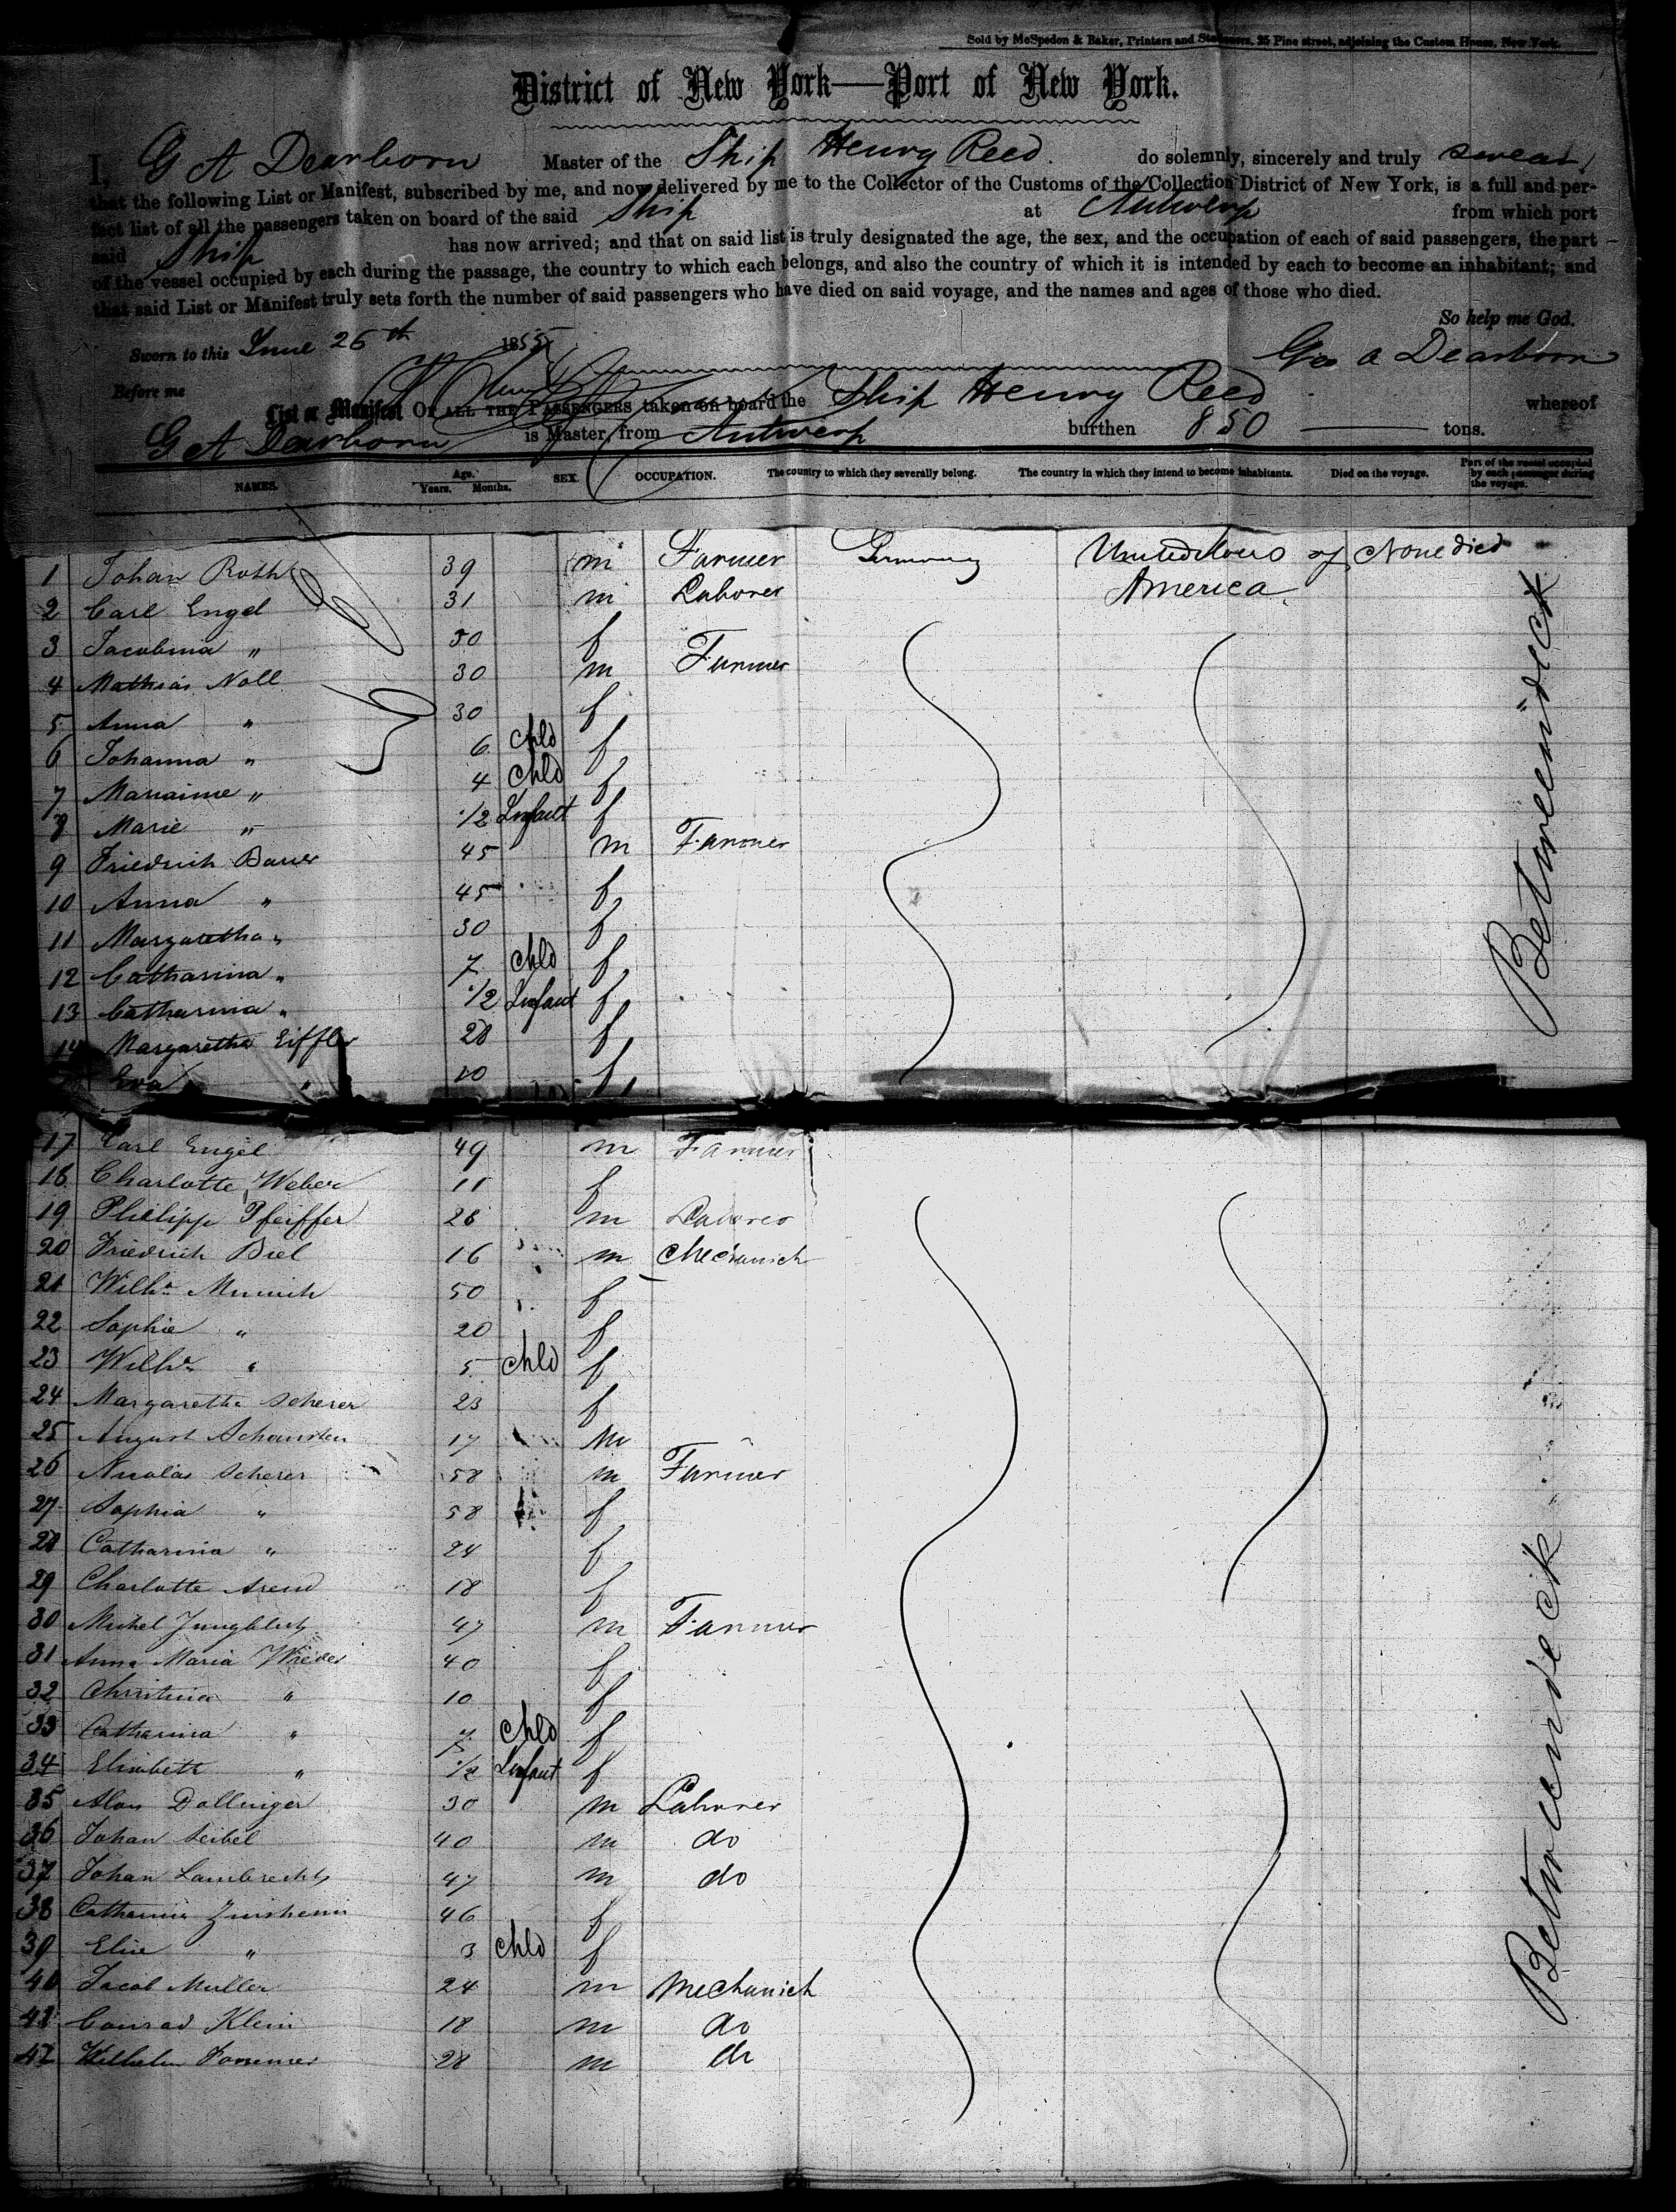 Sold by McSpedon & Baker, Printers and Stationers, 25 Pine street, adjoining the Custom House, New York.
District of New York—Port of New York.
I, G A Dearborn Master of the Ship Henry Reed. do solemnly, sincerely and truly swear
that the following List or Manifest, subscribed by me, and now delivered by me to the Collector of the Customs of the Collection District of New York, is a full and per-
fect list of all the passengers taken on board of the said Ship at Antwerp from which port
said Ship has now arrived; and that on said list is truly designated the age, the sex, and the occupation of each of said passengers, the part
of the vessel occupied by each during the passage, the country to which each belongs, and also the country of which it is intended by each to become an inhabitant; and
that said List or Manifest truly sets forth the number of said passengers who have died on said voyage, and the names and ages of those who died.
So help me God.
Sworn to this June 26th 1855 Geo A Dearborn
Before me
List or Manifest OF ALL THE PASSENGERS taken on board the Ship Henry Reed whereof
G A Dearborn is Master, from Antwerp burthen 850 tons.
NAMES. Age. Years. Months. SEX. OCCUPATION. The country to which they severally belong. The country in which they intend to become inhabitants. Died on the voyage. Part of the vessel occupied by each passenger during the voyage.
1 Johan Roth 39 m Farmer Germany United States of None died
2 Carl Engel 31 m Laborer America
3 Jacobina " 50 f
4 Mathias Noll 30 m Farmer
5 Anna " 30 f
6 Johanna " 6 Chld f
7 Marianne " 4 Chld f
8 Marie " 1/2 Infant f
9 Friedrich Bauer 45 m Farmer
10 Anna " 45 f
11 Margaretha " 30 f
12 Catharina " 7 Chld f
13 Catharina " 1/2 Infant f
14 Margaretha Eiffler 28 f
Eva " 20 f
Betweendeck
17 Carl Engel 49 m Farmer
18 Charlotte Weber 11 f
19 Philipp Pfeiffer 28 m Laborer
20 Friedrich Diel 16 m Mechanich
21 Wilhe. Munich 50 f
22 Sophie " 20 f
23 Wilhe. " 5 Chld f
24 Margaretha Scherer 23 f
25 August 17 m
26 Nicolas Scherer 58 m Farmer
27 Sophia " 58 f
28 Catharina " 24 f
29 Charlotte Arend 18 f
30 Michel Jungbluth 47 m Farmer
31 Anna Maria 40 f
32 Christina " 10 f
33 Catharina " 7 Chld f
34 Elisabeth " 1/2 Infant f
35 Dollinger 30 m Laborer
36 Johan Seibel 40 m do
37 Johan Lambrecht 47 m do
38 Catharina 46 f
39 Elise " 3 Chld f
40 Jacob Muller 24 m Mechanich
41 Conrad Klein 18 m do
42 Wilhelm 28 m do
Betweendeck